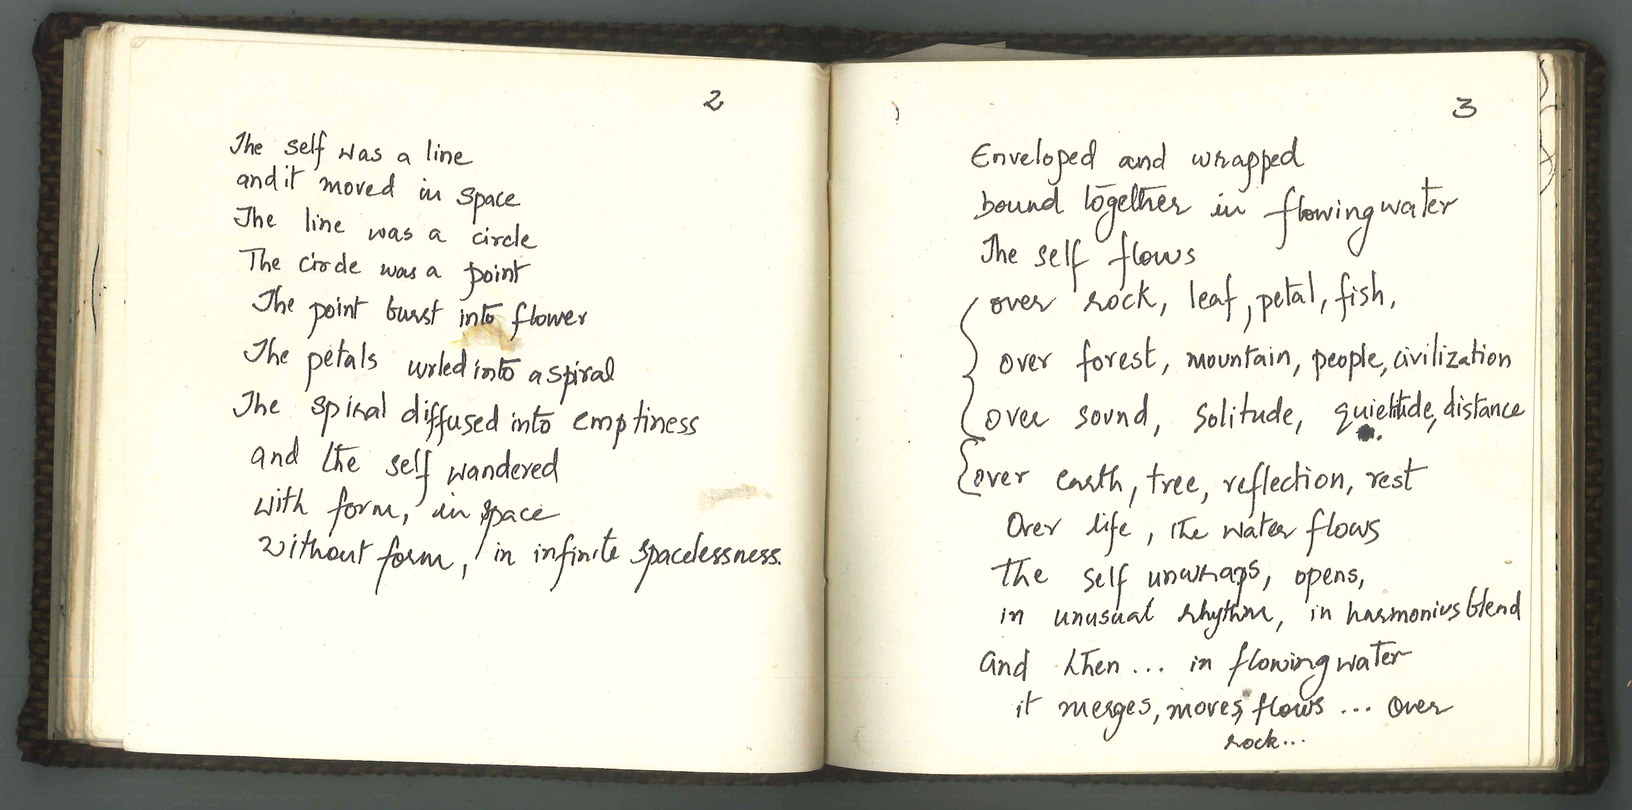 2
The self was a line
and it moved in space
The line was a circle
The circle was a point
The point burst into flower
The petals curled into a spiral
The spiral diffused into emptiness
and the self wandered
with form, in space
without form, in infinite spacelessness.
3
Enveloped and wrapped
bound together in flowing water
The self flows
over rock, leaf, petal, fish,
over forest, mountain, people, civilization
over sound, solitude, quietitude, distance
over earth, tree, reflection, rest
Over life, the water flows
The self unwraps, opens,
in unusual rhythm, in harmonius blend
And then ... in flowing water
it merges, moves, flows ... over
rock...